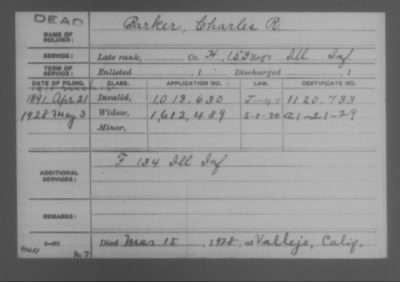 DEAD
NAME OF SOLDIER: Barker, Charles R.
SERVICE: Late rank, Co. H, 153 Reg't Ill Inf
TERM OF SERVICE: Enlisted , 1 Discharged , 1
DATE OF FILING. CLASS. APPLICATION NO. LAW. CERTIFICATE NO.
1891 Apr 21 Invalid, 1,013,630 1120,733
1928 May 3 Widow, 1,612,489 5-1-20 A1-21-29
Minor,
ADDITIONAL SERVICES: F 134 Ill Inf
REMARKS:
Died Mar 15, 1928, at Vallejo, Calif.